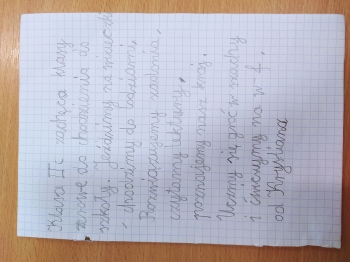 Klasa II c zachęca klasy
zerowe do chodzenia do
szkoły. Jeździmy na wycieczki
i chodzimy do
Rozwiązujemy zadania,
czytamy lektury,
poznajemy nasz kraj.
Uczymy się grać w szachy
i ćwiczymy na w-f.
od Krystiana